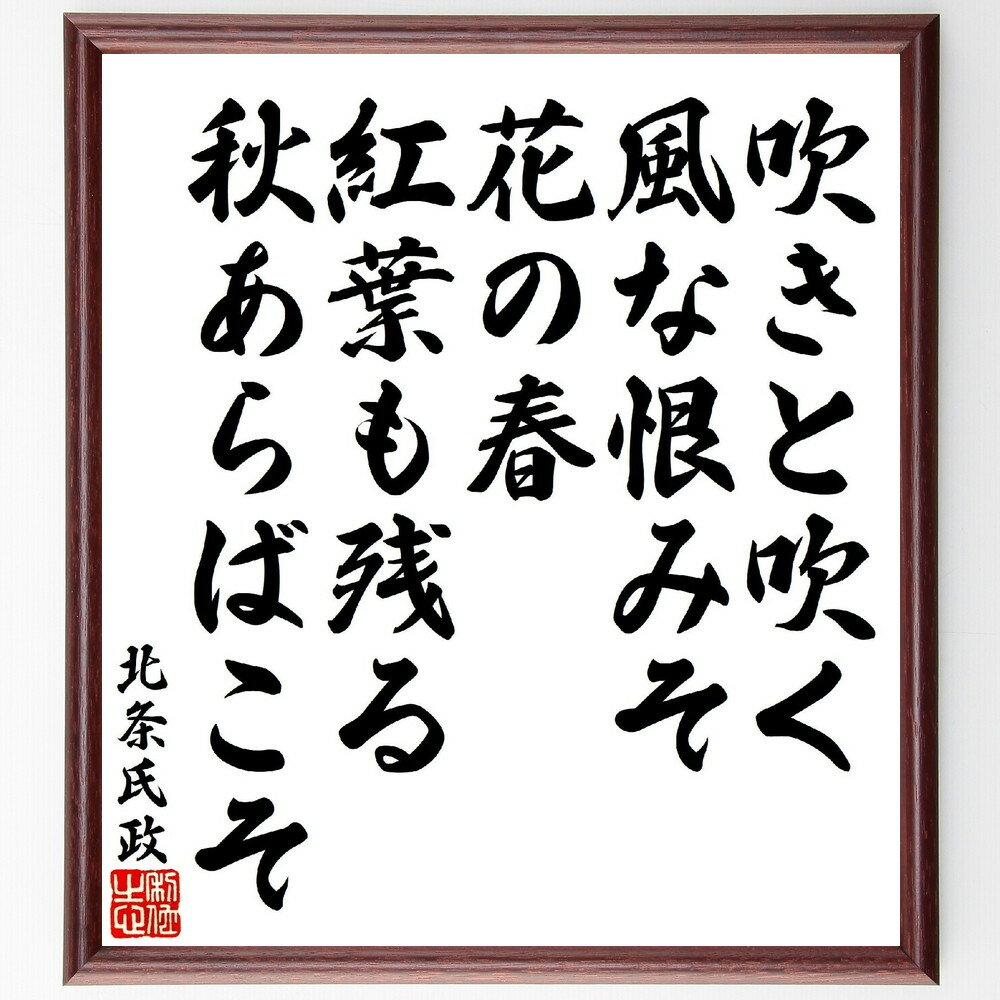 吹きと吹く
風な恨みそ
花の春
紅葉も残る
秋あらばこそ
北条氏政